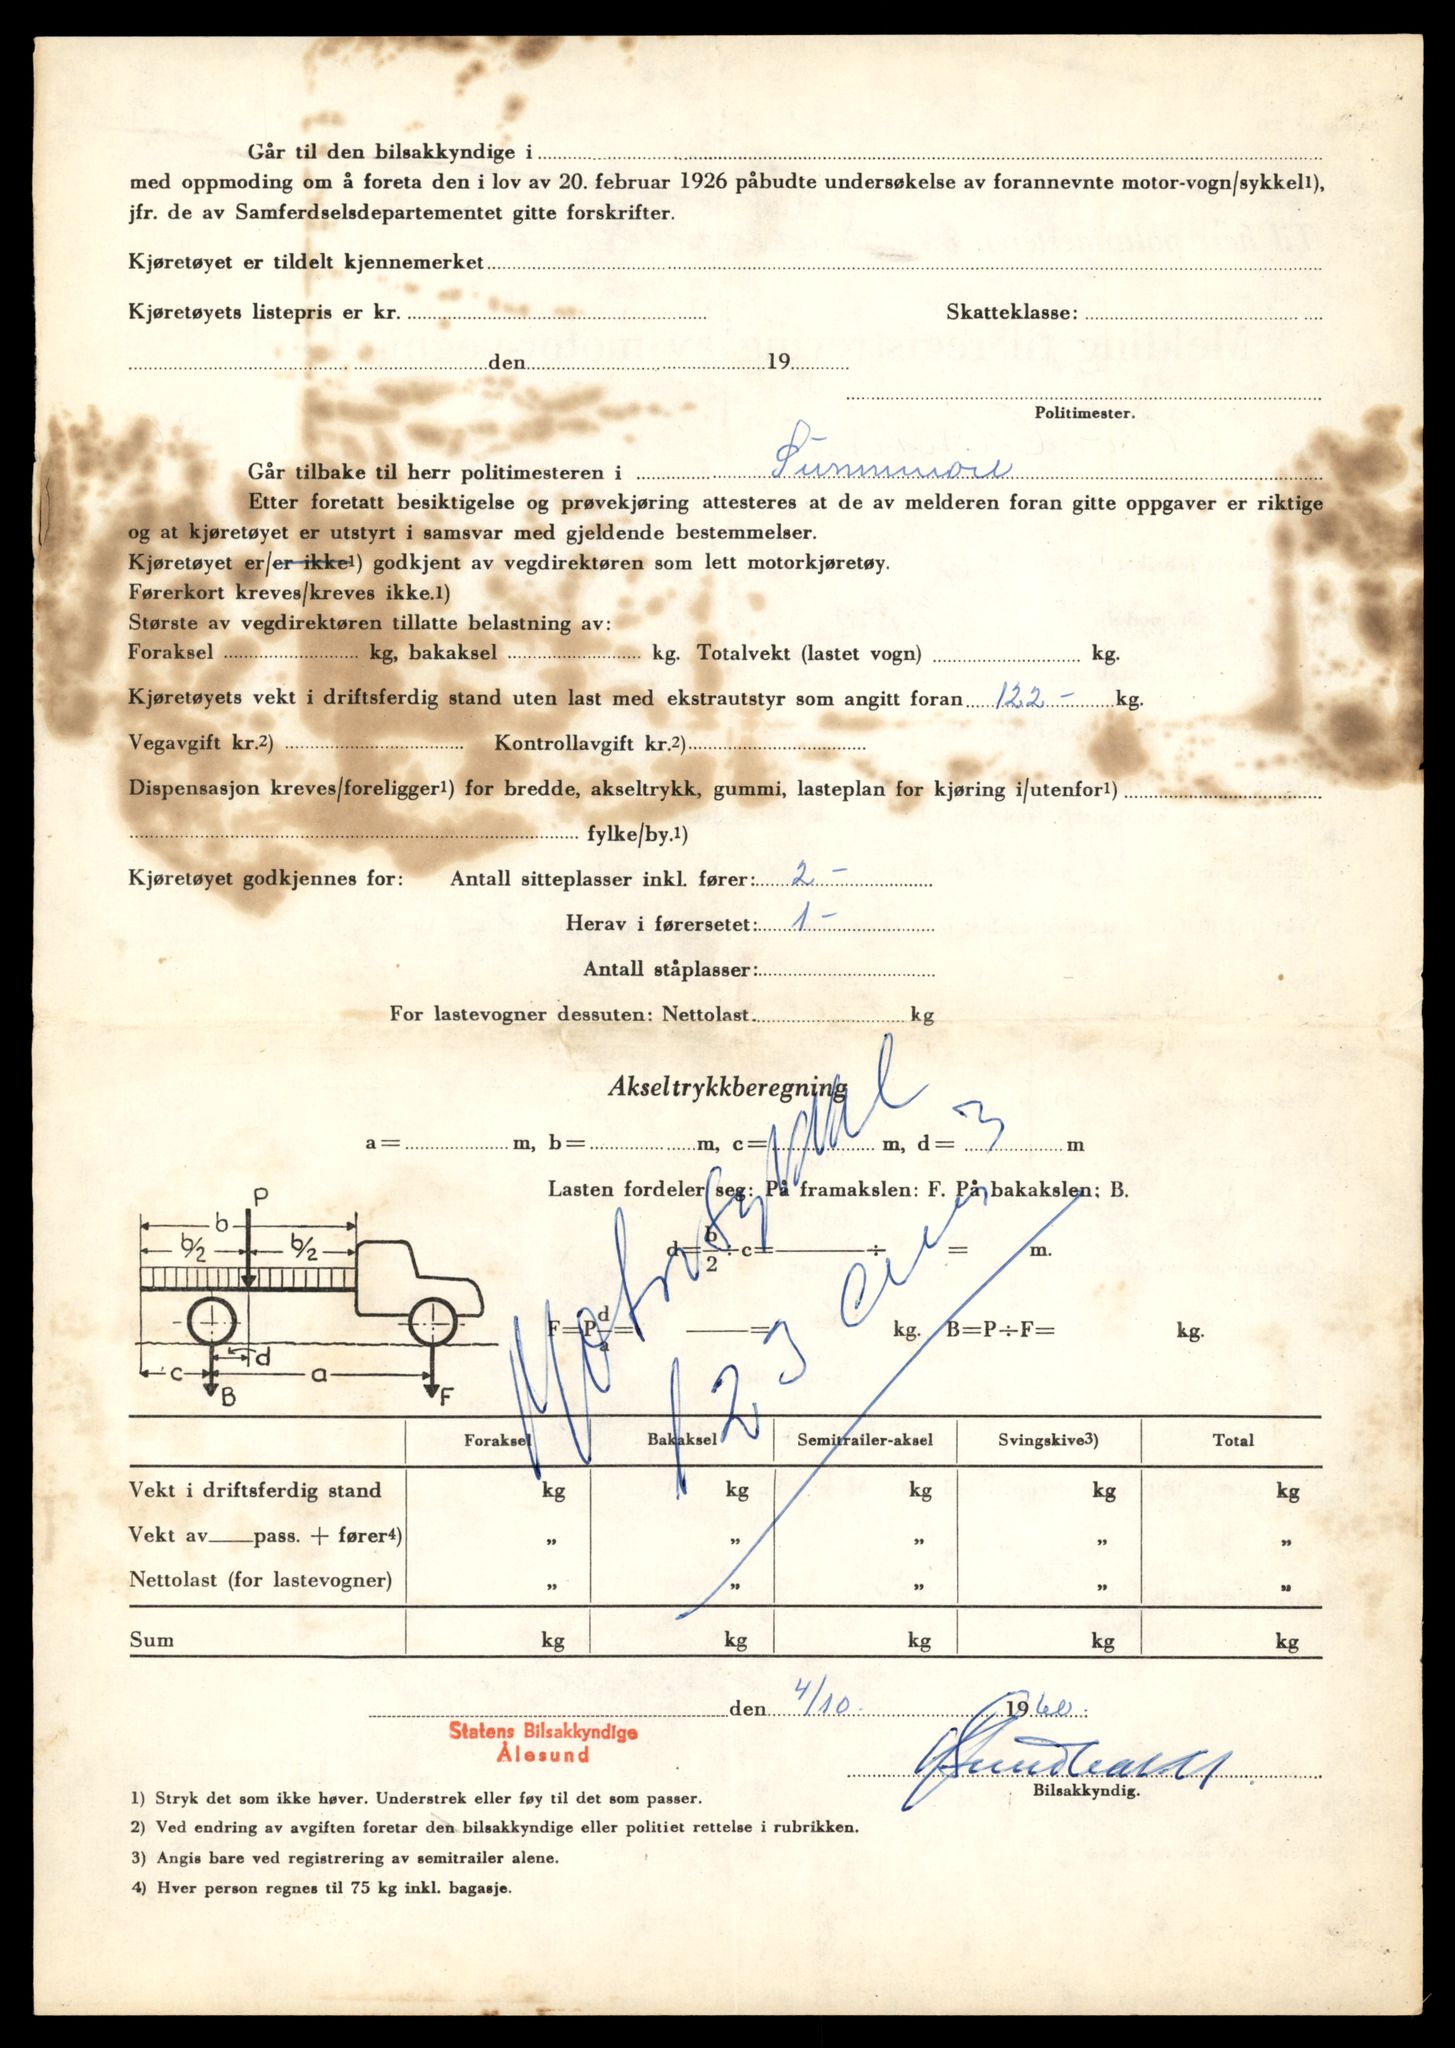 Går til den bilsakkyndige i
med oppmoding om å foreta den i lov av 20. februar 1926 påbudte undersøkelse av forannevnte motor-vogn/sykkel1),
jfr. de av Samferdselsdepartementet gitte forskrifter.
Kjøretøyet er tildelt kjennemerket
Kjøretøyets listepris er kr. Skatteklasse:
den 19
Politimester.
Går tilbake til herr politimesteren i Sunnmøre
Etter foretatt besiktigelse og prøvekjøring attesteres at de av melderen foran gitte oppgaver er riktige
og at kjøretøyet er utstyrt i samsvar med gjeldende bestemmelser.
Kjøretøyet er/er ikke1) godkjent av vegdirektøren som lett motorkjøretøy.
Førerkort kreves/kreves ikke.1)
Største av vegdirektøren tillatte belastning av:
Foraksel kg, bakaksel kg. Totalvekt (lastet vogn) kg.
Kjøretøyets vekt i driftsferdig stand uten last med ekstrautstyr som angitt foran 122 - kg.
Vegavgift kr.2) Kontrollavgift kr.2)
Dispensasjon kreves/foreligger1) for bredde, akseltrykk, gummi, lasteplan for kjøring i/utenfor1)
fylke/by.1)
Kjøretøyet godkjennes for: Antall sitteplasser inkl. fører: 2 -
Herav i førersetet: 1 -
Antall ståplasser:
For lastevogner dessuten: Nettolast kg
Akseltrykkberegning
a = m, b = m, c = m, d = m
Lasten fordeler seg: På framakslen: F. På bakakslen: B.
P
b
b/2 b/2
d = b/2 ÷ c = ÷ = m.
F = P d/a = = kg. B = P ÷ F = kg.
c d a
B F
Motorsykkel
123 cm3
Foraksel Bakaksel Semitrailer-aksel Svingskive3) Total
Vekt i driftsferdig stand kg kg kg kg kg
Vekt av pass. + fører4) „ „ „ „ „
Nettolast (for lastevogner) „ „ „ „ „
Sum kg kg kg kg kg
den 4/10. 1960.
Statens Bilsakkyndige
Ålesund
Bilsakkyndig.
1) Stryk det som ikke høver. Understrek eller føy til det som passer.
2) Ved endring av avgiften foretar den bilsakkyndige eller politiet rettelse i rubrikken.
3) Angis bare ved registrering av semitrailer alene.
4) Hver person regnes til 75 kg inkl. bagasje.